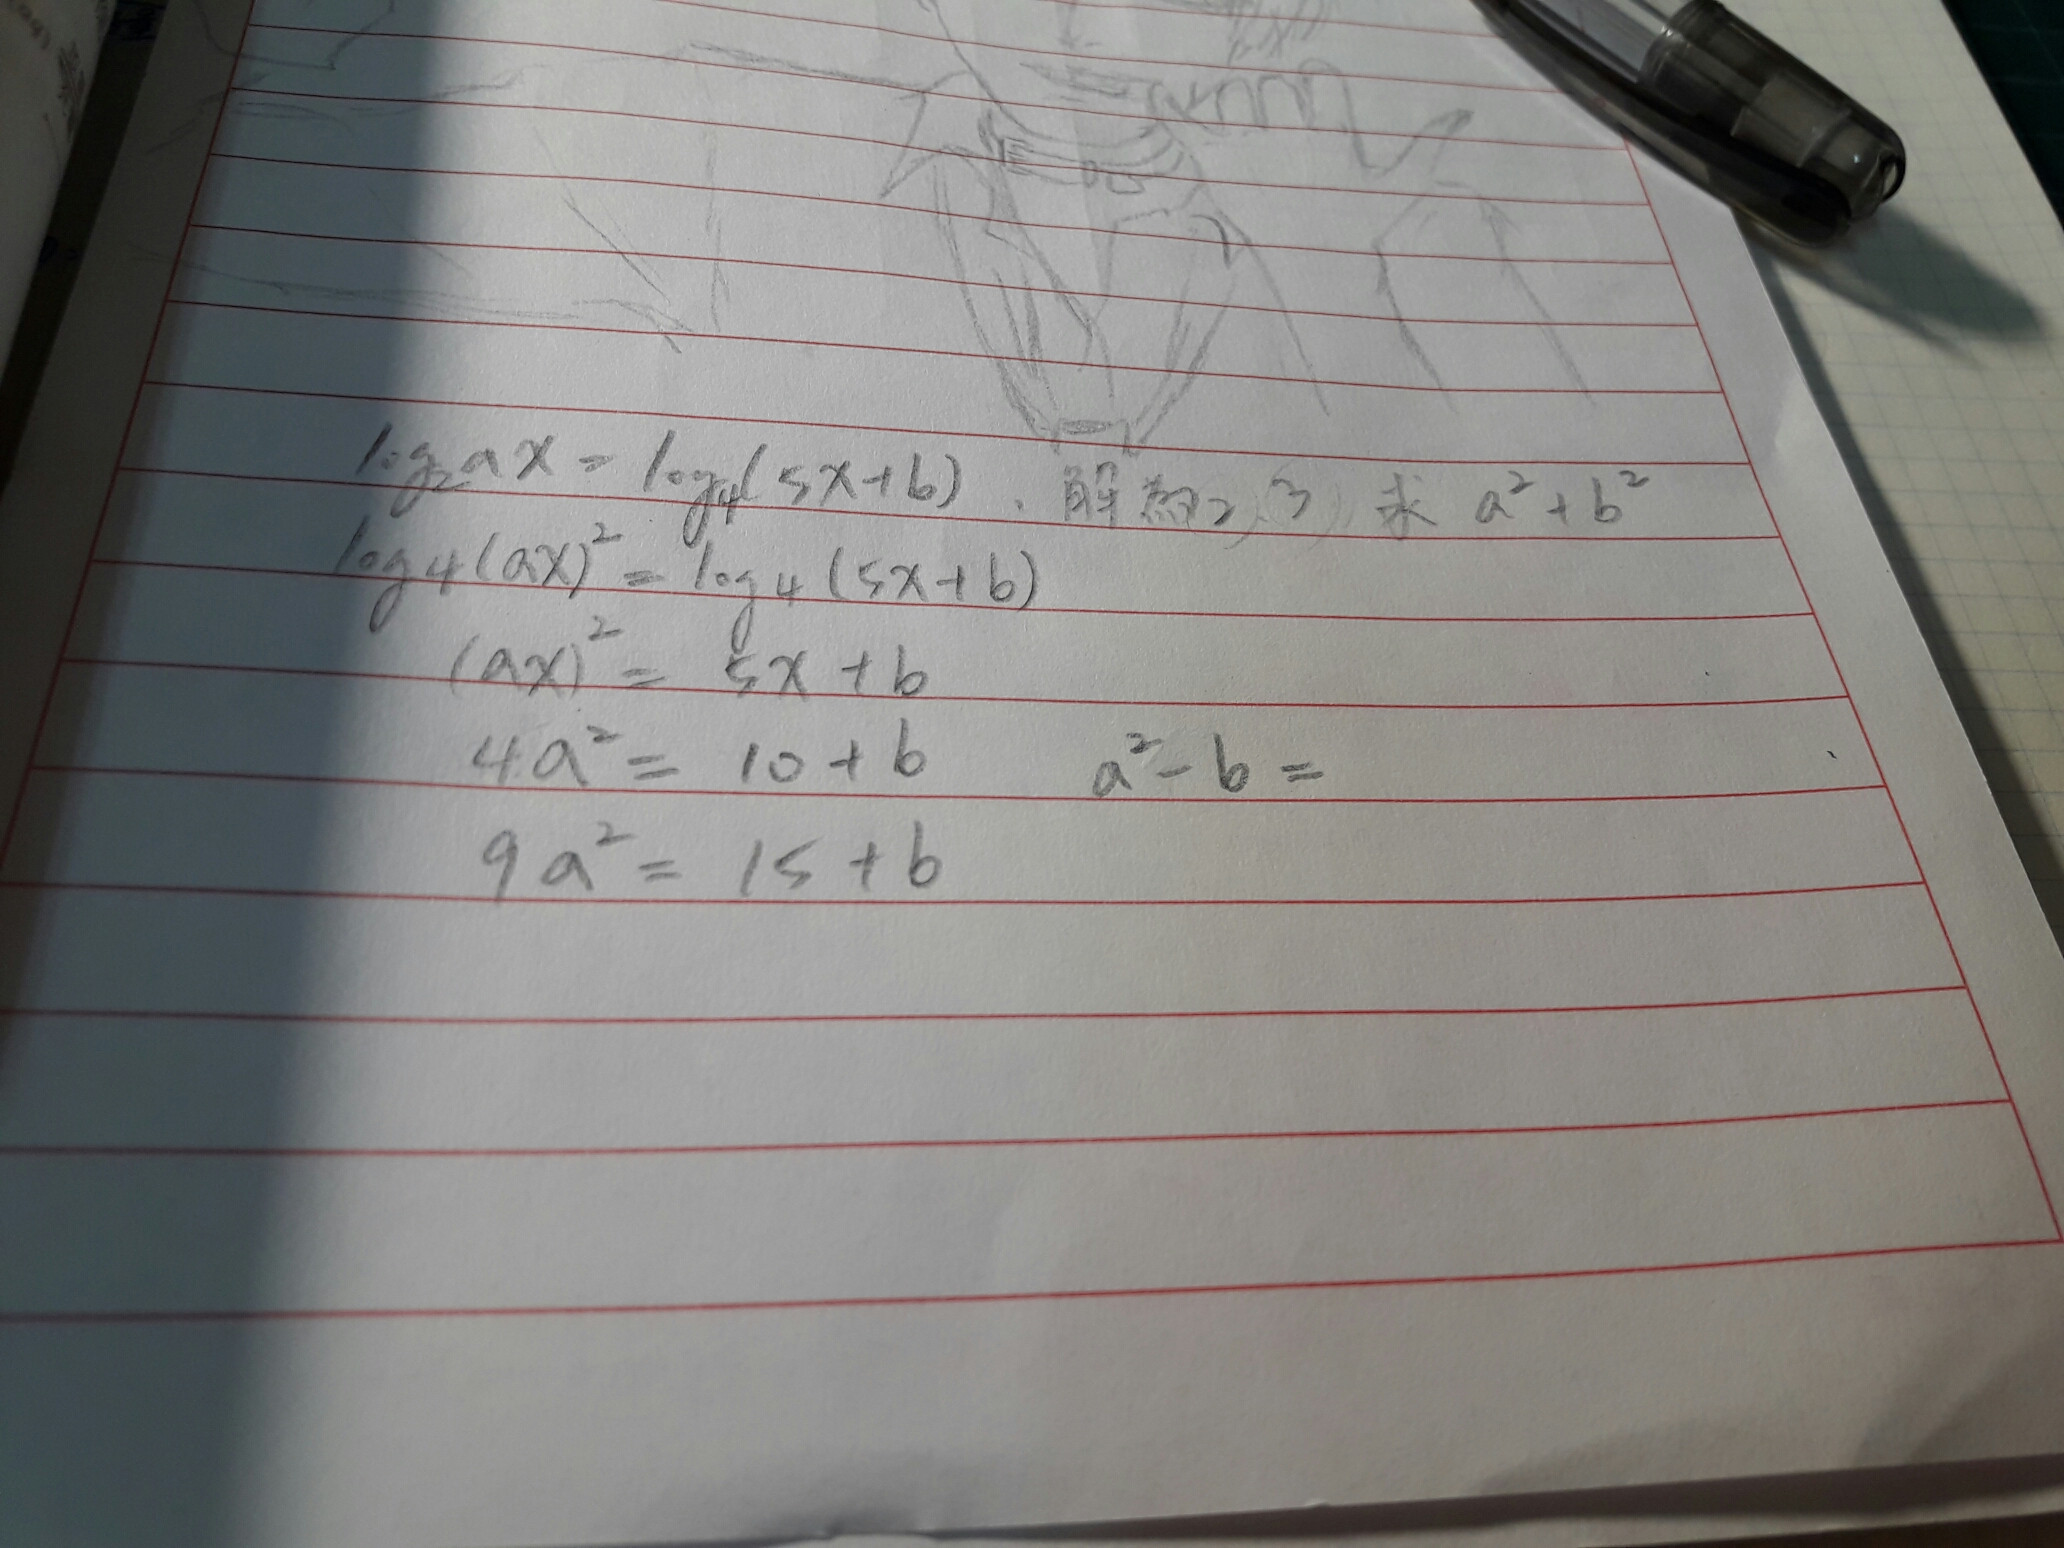 log₂ax = log₄(5x+b) . 解為2,3 求 a²+b²
log₄(ax)² = log₄(5x+b)
(ax)² = 5x+b
4a² = 10+b a²-b =
9a² = 15+b